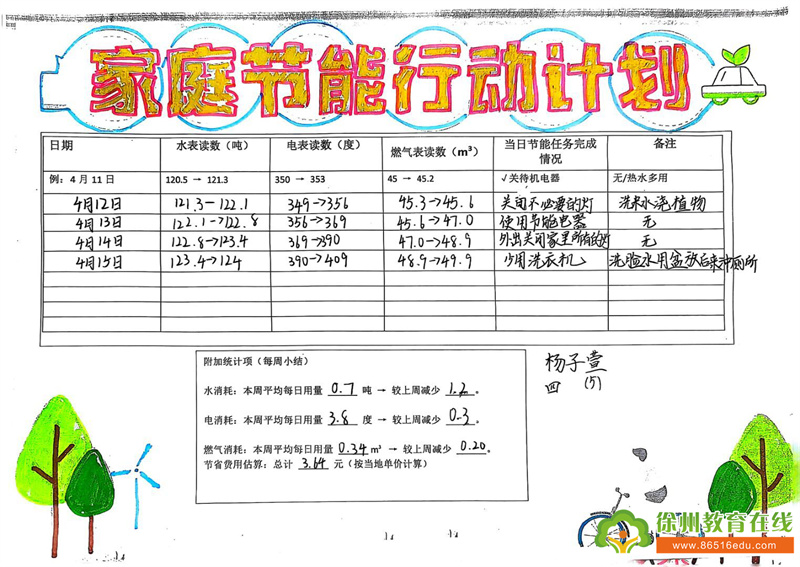 家庭节能行动计划
日期 水表读数（吨） 电表读数（度） 燃气表读数（m³） 当日节能任务完成情况 备注
例：4 月 11 日 120.5 → 121.3 350 → 353 45 → 45.2 √关待机电器 无/热水多用
4月12日 121.3→122.1 349→356 45.3→45.6 关闭不必要的灯 洗米水浇植物
4月13日 122.1→122.8 356→369 45.6→47.0 使用节能电器 无
4月14日 122.8→123.4 369→390 47.0→48.9 外出关闭家里所有的灯 无
4月15日 123.4→124 390→409 48.9→49.9 少用洗衣机 洗脸水用盆放后来冲厕所
附加统计项（每周小结）
水消耗：本周平均每日用量 0.7 吨 → 较上周减少 1.2 。
电消耗：本周平均每日用量 3.8 度 → 较上周减少 0.3 。
燃气消耗：本周平均每日用量 0.34 m³ → 较上周减少 0.20 。
节省费用估算：总计 3.64 元（按当地单价计算）
杨子萱
四（5）
徐州教育在线
www.86516edu.com